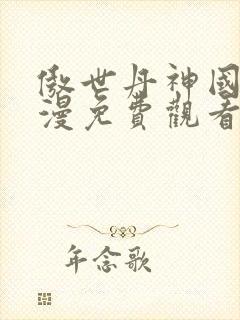 傲世丹神國
漫免費觀看
年念歌